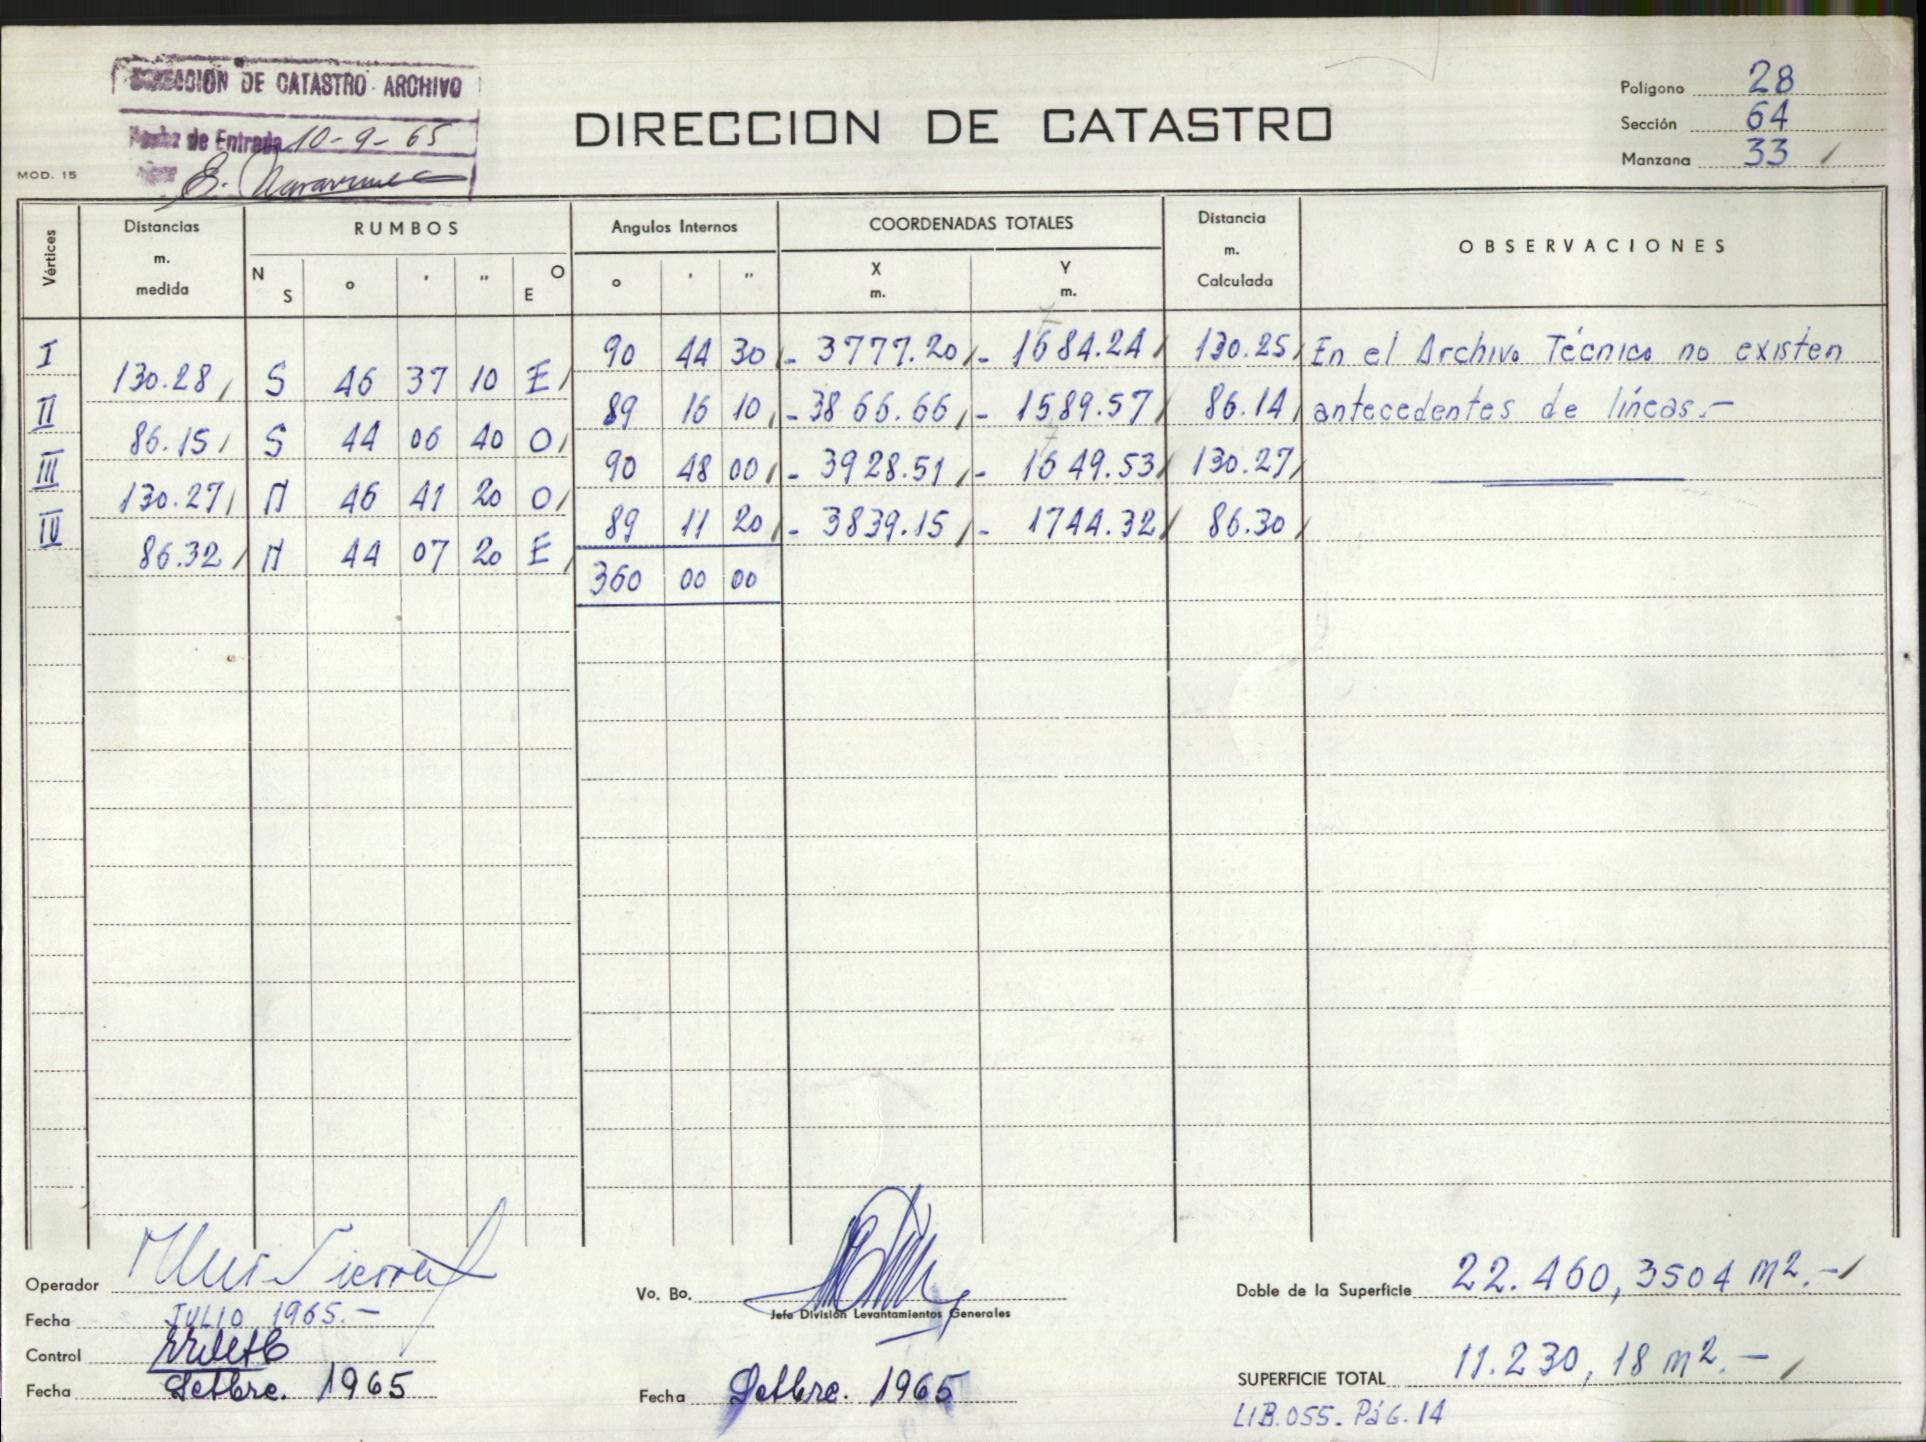 DIRECCION DE CATASTRO - ARCHIVO
Fecha de Entrada 10-9-65
MOD. 15
DIRECCION DE CATASTRO
Poligono 28
Sección 64
Manzana 33
Vértices
Distancias m. medida
RUMBOS
N S ° ' " O E
Angulos Internos
° ' "
COORDENADAS TOTALES
X m. Y m.
Distancia m. Calculada
OBSERVACIONES
I 90 44 30 - 3777.20 - 1684.24 130.25 En el Archivo Técnico no existen
130.28 S 46 37 10 E
II 89 16 10 - 3866.66 - 1589.57 86.14 antecedentes de líneas.-
86.15 S 44 06 40 O
III 90 48 00 - 3928.51 - 1649.53 130.27
130.27 N 46 41 20 O
IV 89 11 20 - 3839.15 - 1744.32 86.30
86.32 N 44 07 20 E
360 00 00
Operador
Fecha JULIO 1965.-
Control
Fecha Setbre. 1965
Vo. Bo.
Jefe División Levantamientos Generales
Fecha Setbre. 1965
Doble de la Superficie 22.460,3504 m2.-
SUPERFICIE TOTAL 11.230,18 m2.-
LIB.055. Pág.14